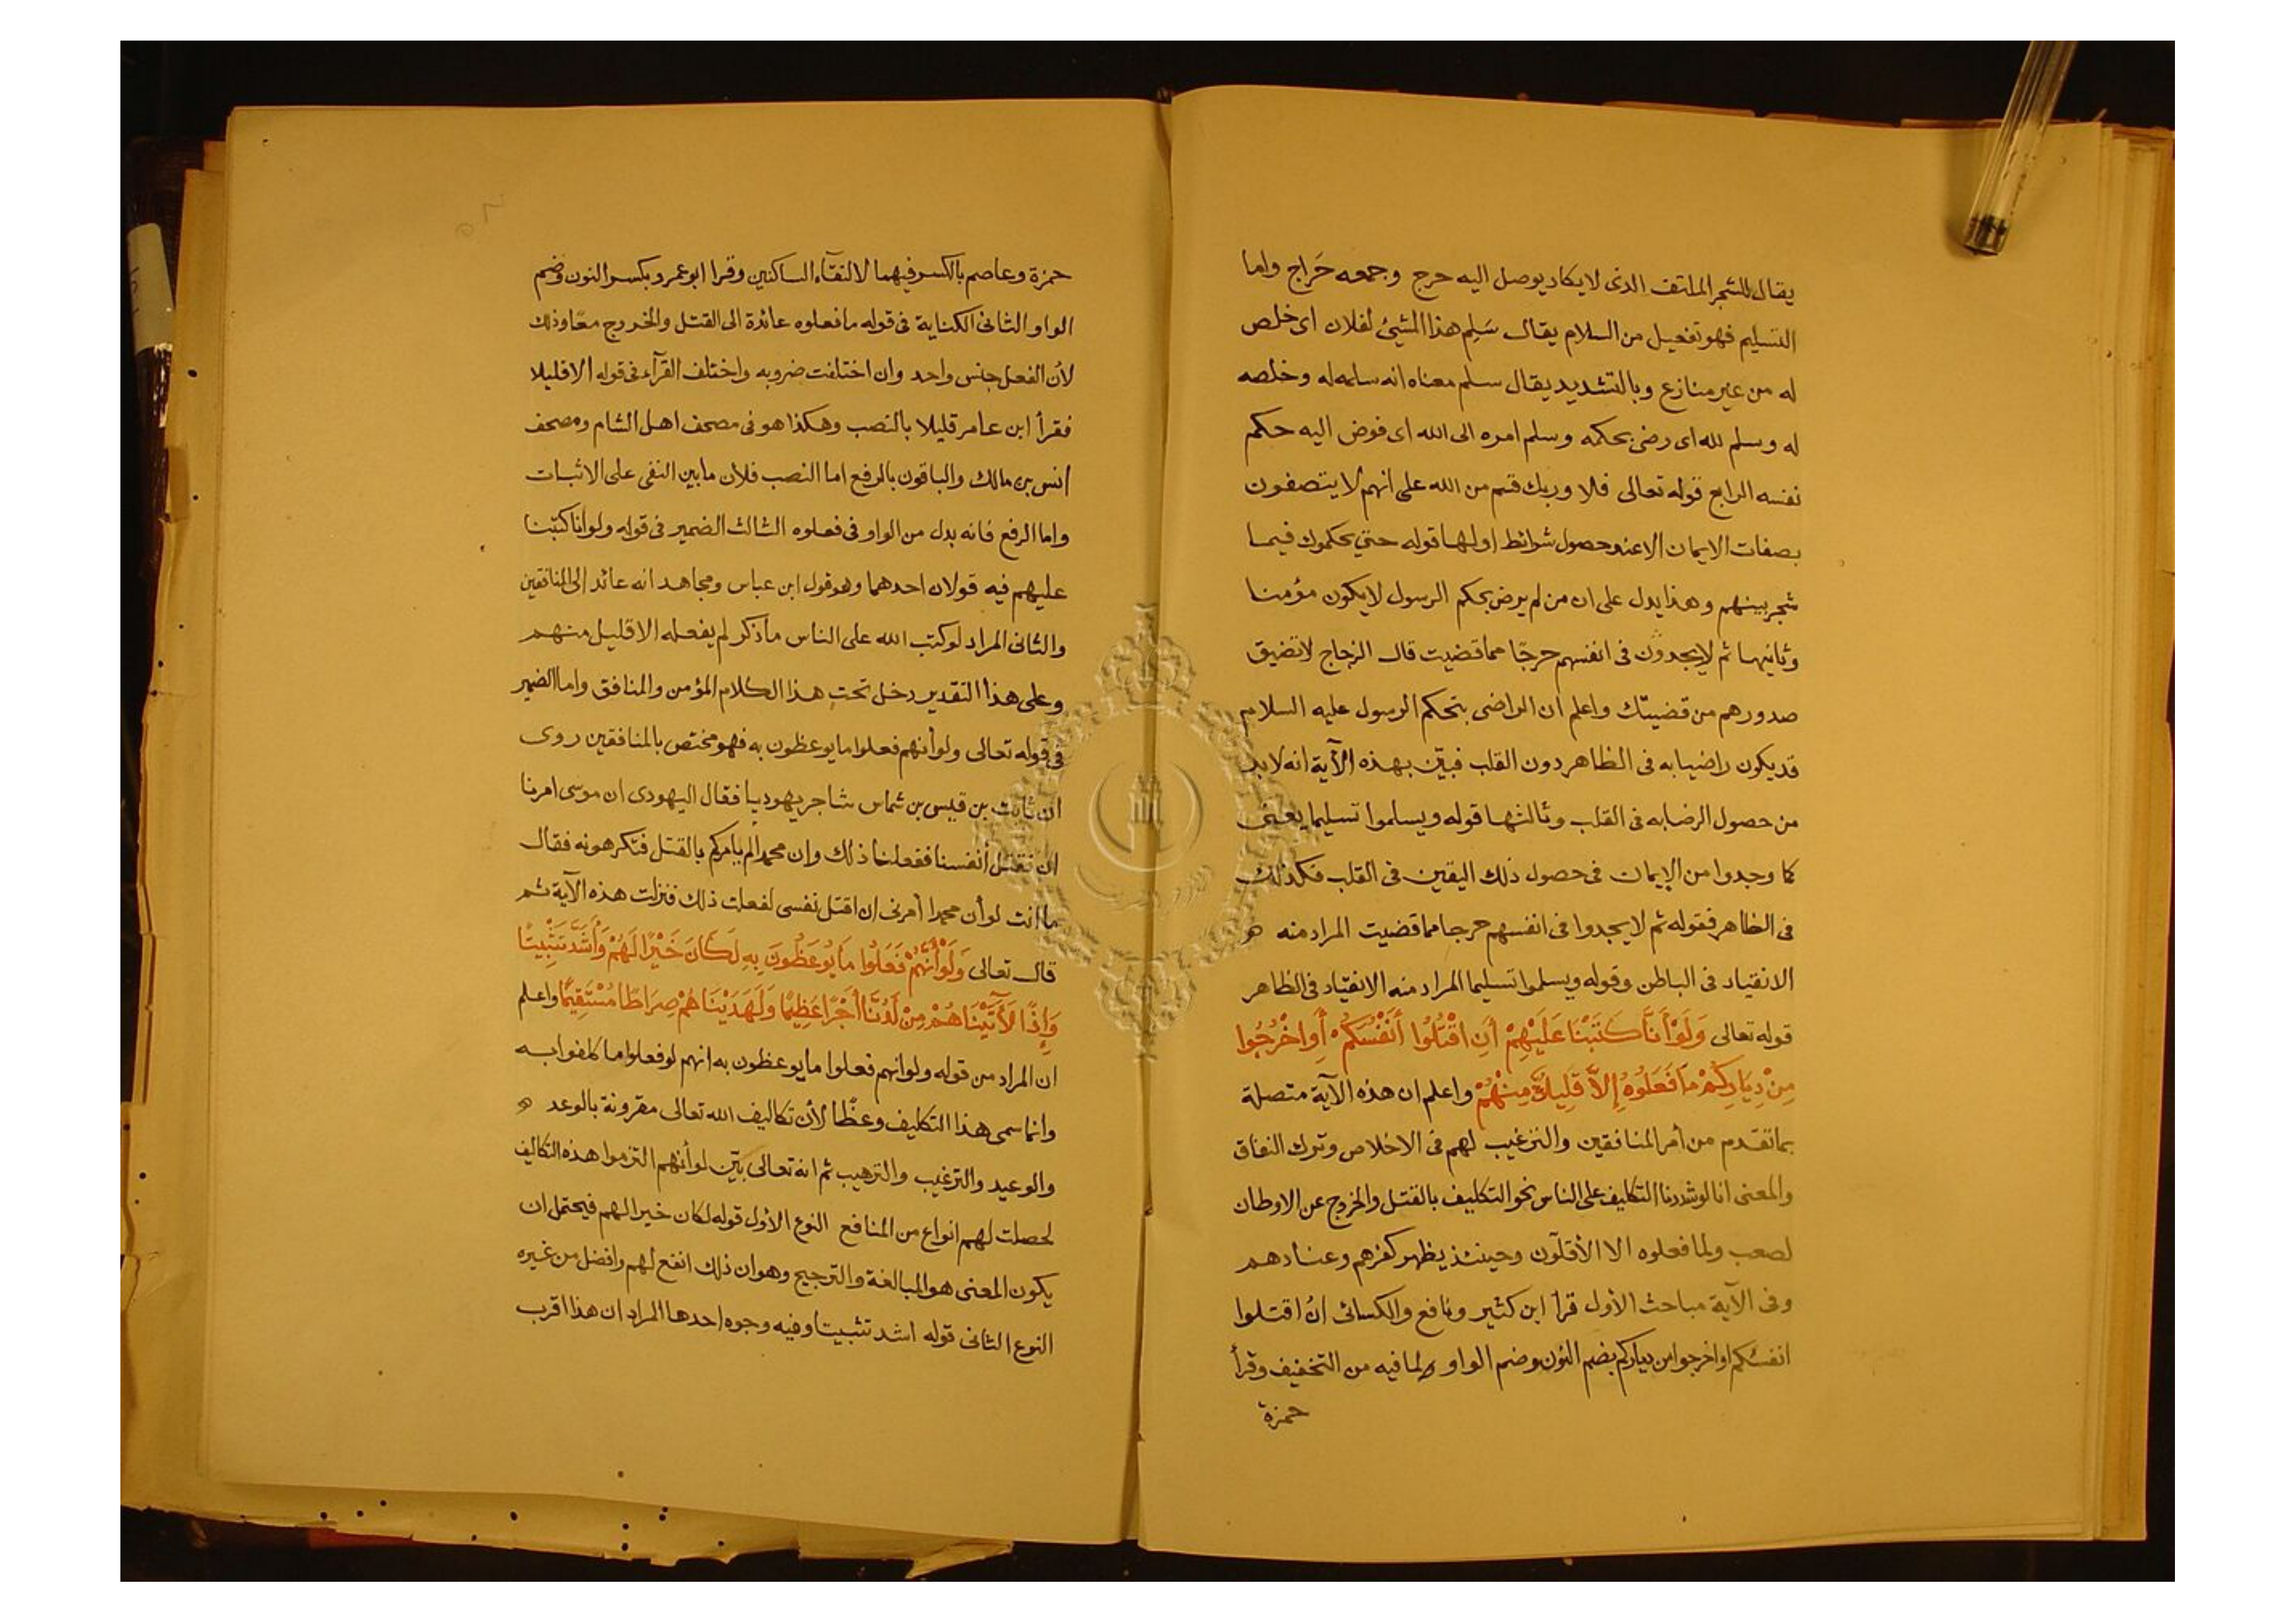 يقال للشجر الملتف الذى لا يكاد يوصل اليه حرج وجمعه حَراج واما
التسليم فهو تفعيل من السلام يقال سَلِم هذا الشيئ لفلان اى خلص
له من غير منازع وبالتشديد يقال سلم معناه انه سلمه له وخلصه
له وسلم لله اى رضى بحكمه وسلم امره الى الله اى فوض اليه حكم
نفسه الرابع قوله تعالى فلا وربك قسم من الله على انهم لا يتصفون
بصفات الايمان الا عند حصول شرائط اولها قوله حتى يحكموك فيما
شجر بينهم وهذا يدل على ان من لم يرض بحكم الرسول لا يكون مؤمنا
وثانيها ثم لا يجدون فى انفسهم حرجًا مما قضيت قال الزجاج لا تضيق
صدورهم من قضيتك واعلم ان الراضى بتحكم الرسول عليه السلام
قد يكون راضيا به فى الظاهر دون القلب فبيّن بهذه الآية انه لا بد
من حصول الرضا به فى القلب وثالثها قوله ويسلموا تسليما يعنى
كما وجدوا من الإيمان فى حصول ذلك اليقين فى القلب فكذلك
فى الظاهر فقوله ثم لا يجدوا فى انفسهم حرجا مما قضيت المراد منه هو
الانقياد فى الباطن وقوله ويسلموا تسليما المراد منه الانقياد فى الظاهر
قوله تعالى وَلَوْ أَنَّا كَتَبْنَا عَلَيْهِمْ أَنِ اقْتُلُوا أَنْفُسَكُمْ أَوِ اخْرُجُوا
مِنْ دِيَارِكُمْ مَا فَعَلُوهُ إِلاَّ قَلِيلٌ مِنْهُمْ واعلم ان هذه الآية متصلة
بما تقدم من أمر المنافقين والترغيب لهم فى الاخلاص وترك النفاق
والمعنى انا لو شددنا التكليف على الناس نحو التكليف بالقتل والخروج عن الاوطان
لصعب ولما فعلوه الا الأقلّون وحينئذ يظهر كفرهم وعنادهم
وفى الآية مباحث الأول قرأ ابن كثير ونافع والكسائى انُ اقتلوا
انفسكم او اخرجوا من دياركم بضم النون وضم الواو لما فيه من التخفيف وقرأ
حمزة
حمزة وعاصم بالكسر فيهما لالتقاء الساكنين وقرا ابو عمرو بكسر النون وضم
الواو الثانى الكناية فى قوله ما فعلوه عائدة الى القتل والخروج معًا وذلك
لأن الفعل جنس واحد وان اختلفت ضروبه واختلف القرآء فى قوله الا قليلا
فقرأ ابن عامر قليلا بالنصب وهكذا هو فى مصحف اهل الشام ومصحف
انس بن مالك والباقون بالرفع اما النصب فلأن ما بين النفى على الاثبات
واما الرفع فانه بدل من الواو فى فعلوه الثالث الضمير فى قوله ولو أنا كتبنا
عليهم فيه قولان احدهما وهو قول ابن عباس ومجاهد انه عائد إلى المنافقين
والثانى المراد لو كتب الله على الناس ما ذكر لم يفعله الا قليل منهم
وعلى هذا التقدير دخل تحت هذا الكلام المؤمن والمنافق واما الضمير
فى قوله تعالى ولو أنهم فعلوا ما يوعظون به فهو مختص بالمنافقين روى
ان ثابت بن قيس بن شماس شاجر يهوديا فقال اليهودى ان موسى امرنا
ان نقتل أنفسنا ففعلنا ذلك وإن محمدا لم يأمركم بالقتل فتكرهونه فقال
ما انت لو أن محمدا أمرنى ان اقتل نفسى لفعلت ذلك فنزلت هذه الآية ثم
قال تعالى وَلَوْ أَنَّهُمْ فَعَلُوا مَا يُوعَظُونَ بِهِ لَكَانَ خَيْرًا لَهُمْ وَأَشَدَّ تَثْبِيتًا
وَإِذًا لَأَتَيْنَاهُمْ مِنْ لَدُنَّا أَجْرًا عَظِيمًا وَلَهَدَيْنَاهُمْ صِرَاطًا مُسْتَقِيمًا واعلم
ان المراد من قوله ولو انهم فعلوا ما يوعظون به انهم لو فعلوا ما كلفوا به
وانما سمى هذا التكليف وعظًا لأن تكاليف الله تعالى مقرونة بالوعد
والوعيد والترغيب والترهيب ثم انه تعالى بيّن لو أنهم التزموا هذه التكاليف
لحصلت لهم انواع من المنافع النوع الأول قوله لكان خيرا لهم فيحتمل ان
يكون المعنى هو المبالغة والترجيح وهو ان ذلك انفع لهم وافضل من غيره
النوع الثانى قوله اشد تثبيتا وفيه وجوه احدها المراد ان هذا اقرب